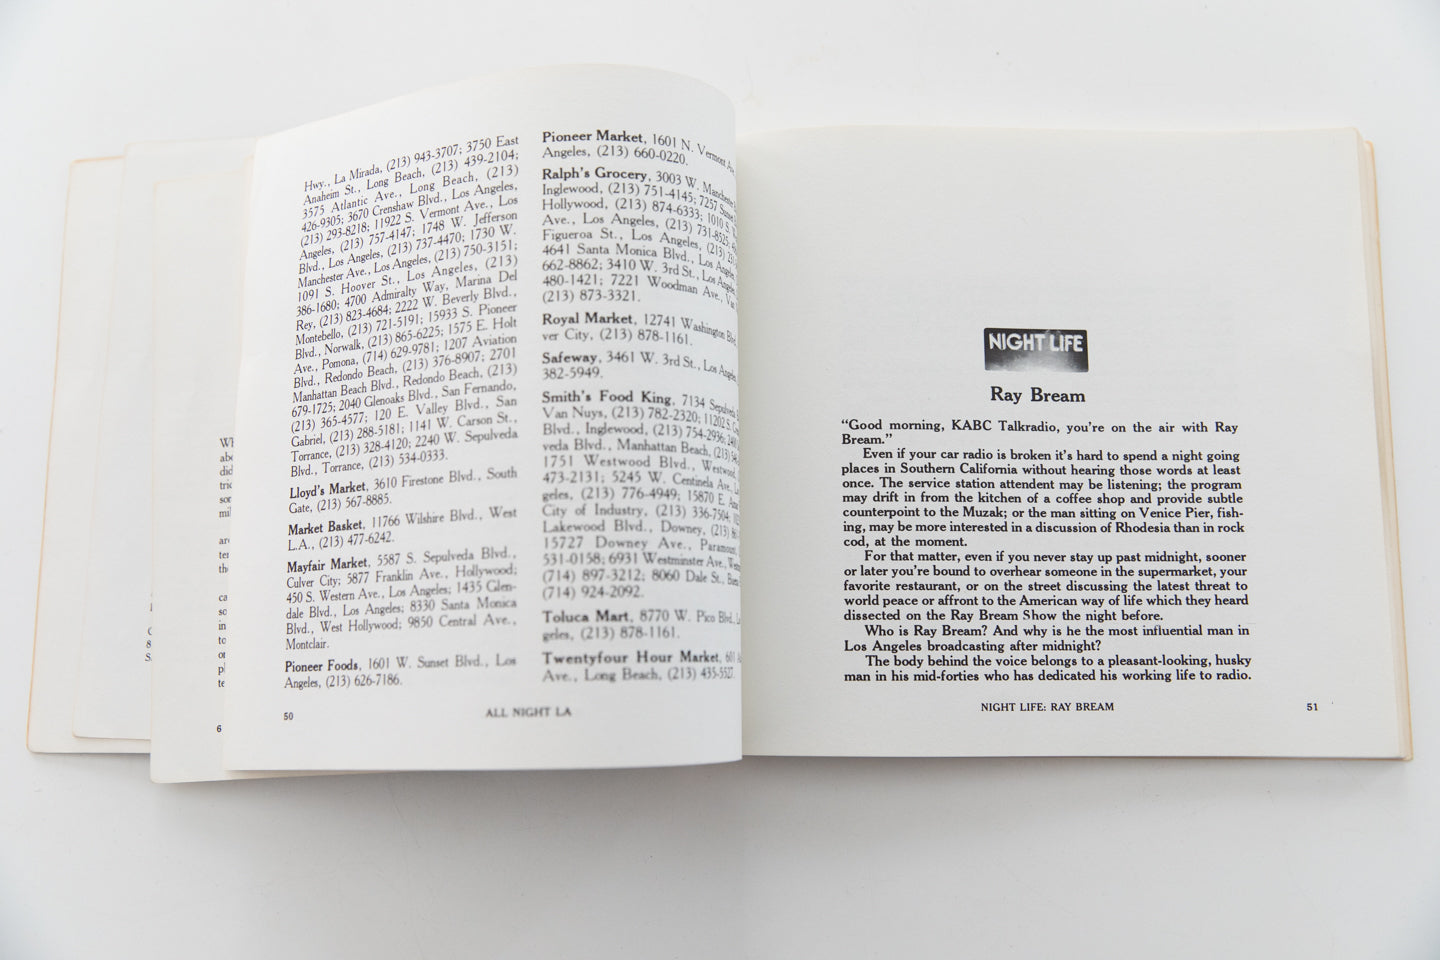 Hwy., La Mirada, (213) 943-3707; 3750 East
Anaheim St., Long Beach, (213) 439-2104;
3575 Atlantic Ave., Long Beach, (213)
426-9305; 3670 Crenshaw Blvd., Los Angeles,
(213) 293-8218; 11922 S. Vermont Ave., Los
Angeles, (213) 757-4147; 1748 W. Jefferson
Blvd., Los Angeles, (213) 737-4470; 1730 W.
Manchester Ave., Los Angeles, (213) 750-3151;
1091 S. Hoover St., Los Angeles, (213)
386-1680; 4700 Admiralty Way, Marina Del
Rey, (213) 823-4684; 2222 W. Beverly Blvd.,
Montebello, (213) 721-5191; 15933 S. Pioneer
Blvd., Norwalk, (213) 865-6225; 1575 E. Holt
Ave., Pomona, (714) 629-9781; 1207 Aviation
Blvd., Redondo Beach, (213) 376-8907; 2701
Manhattan Beach Blvd., Redondo Beach, (213)
679-1725; 2040 Glenoaks Blvd., San Fernando,
(213) 365-4577; 120 E. Valley Blvd., San
Gabriel, (213) 288-5181; 1141 W. Carson St.,
Torrance, (213) 328-4120; 2240 W. Sepulveda
Blvd., Torrance, (213) 534-0333.
Lloyd's Market, 3610 Firestone Blvd., South
Gate, (213) 567-8885.
Market Basket, 11766 Wilshire Blvd., West
L.A., (213) 477-6242.
Mayfair Market, 5587 S. Sepulveda Blvd.,
Culver City; 5877 Franklin Ave., Hollywood;
450 S. Western Ave., Los Angeles; 1435 Glen-
dale Blvd., Los Angeles; 8330 Santa Monica
Blvd., West Hollywood; 9850 Central Ave.,
Montclair.
Pioneer Foods, 1601 W. Sunset Blvd., Los
Angeles, (213) 626-7186.
Pioneer Market, 1601 N. Vermont Ave
Angeles, (213) 660-0220.
Ralph's Grocery, 3003 W. Manchester
Inglewood, (213) 751-4145; 7257 Sunse
Hollywood, (213) 874-6333; 1010 S.
Ave., Los Angeles, (213) 731-8525;
Figueroa St., Los Angeles, (213)
4641 Santa Monica Blvd., Los Angeles
662-8862; 3410 W. 3rd St., Los Angeles
480-1421; 7221 Woodman Ave., Van
(213) 873-3321.
Royal Market, 12741 Washington Blvd.
ver City, (213) 878-1161.
Safeway, 3461 W. 3rd St., Los Angeles,
382-5949.
Smith's Food King, 7134 Sepulveda
Van Nuys, (213) 782-2320; 11202 S.
Blvd., Inglewood, (213) 754-2936;
veda Blvd., Manhattan Beach, (213)
1751 Westwood Blvd., Westwood,
473-2131; 5245 W. Centinela Ave.,
geles, (213) 776-4949; 15870 E.
City of Industry, (213) 336-7504;
Lakewood Blvd., Downey, (213)
15727 Downey Ave., Paramount,
531-0158; 6931 Westminster Ave.,
(714) 897-3212; 8060 Dale St.,
(714) 924-2092.
Toluca Mart, 8770 W. Pico Blvd.
geles, (213) 878-1161.
Twentyfour Hour Market, 601
Ave., Long Beach, (213) 435-5527.
50
ALL NIGHT LA
6
NIGHT LIFE
Ray Bream
“Good morning, KABC Talkradio, you're on the air with Ray
Bream.”
Even if your car radio is broken it's hard to spend a night going
places in Southern California without hearing those words at least
once. The service station attendent may be listening; the program
may drift in from the kitchen of a coffee shop and provide subtle
counterpoint to the Muzak; or the man sitting on Venice Pier, fish-
ing, may be more interested in a discussion of Rhodesia than in rock
cod, at the moment.
For that matter, even if you never stay up past midnight, sooner
or later you're bound to overhear someone in the supermarket, your
favorite restaurant, or on the street discussing the latest threat to
world peace or affront to the American way of life which they heard
dissected on the Ray Bream Show the night before.
Who is Ray Bream? And why is he the most influential man in
Los Angeles broadcasting after midnight?
The body behind the voice belongs to a pleasant-looking, husky
man in his mid-forties who has dedicated his working life to radio.
NIGHT LIFE: RAY BREAM
51